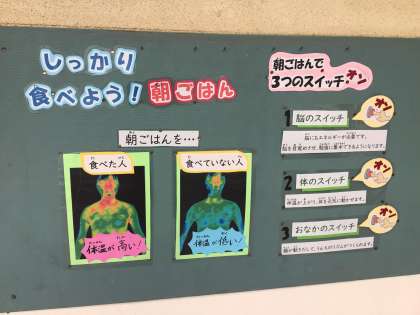 しっかり
食べよう！朝ごはん
朝ごはんを…
食べた人
体温が高い！
食べていない人
体温が低い！
朝ごはんで
3つのスイッチオン
1 脳のスイッチ
オン
脳にもエネルギーが必要です。
2 体のスイッチ
オン
3 おなかのスイッチ
オン